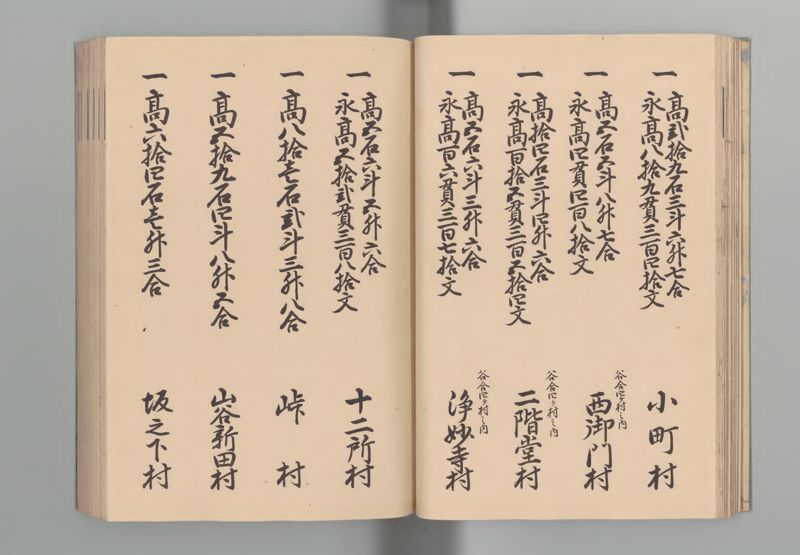 一 高弐拾九石三斗六升七合
永高八拾九貫三百四拾文
小町村
一 高五石五斗八升七合
永高四貫四百八拾文
谷合四ケ村之内
西御門村
一 高拾四石三斗四升六合
永高百拾五貫三百五拾四文
谷合四ケ村之内
二階堂村
一 高五石六斗三升六合
永高百六貫三百七拾文
谷合四ケ村之内
浄妙寺村
一 高五石六斗五升六合
永高五拾弐貫三百八拾文
十二所村
一 高八拾壱石弐斗三升八合
峠村
一 高五拾九石四斗八升五合
山谷新田村
一 高六拾四石壱升三合
坂之下村